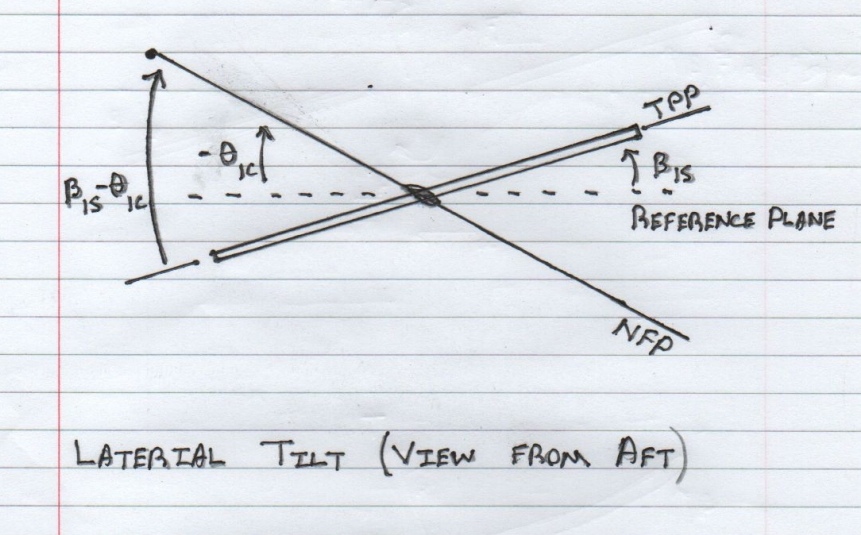 TPP
-θ1C
β1S
β1S-θ1C
REFERENCE PLANE
NFP
LATERIAL TILT (VIEW FROM AFT)